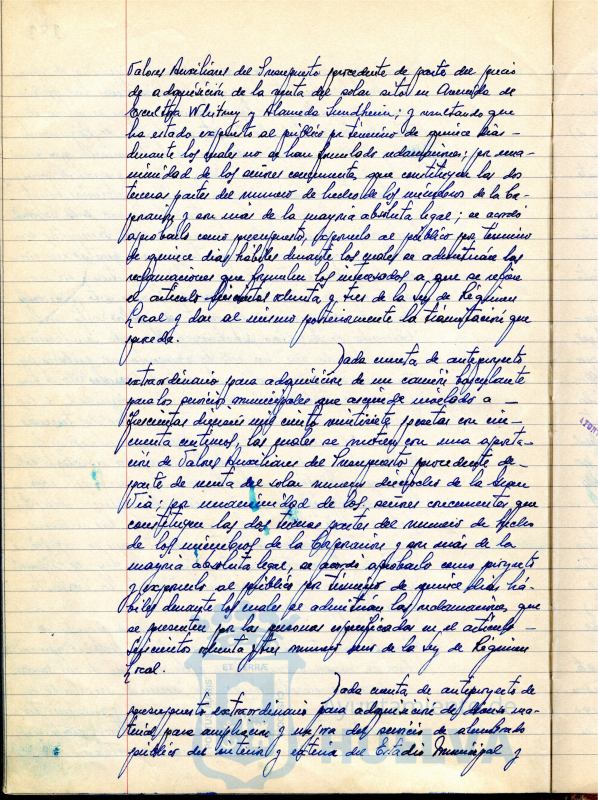 Valores Auxiliares del Presupuesto procedente de parte del precio
de adquisición de la venta del solar sito en Avenida de
Escultora Whitney y Alameda Sundheim; y resultando que
ha estado expuesto al público por término de quince días
durante los cuales no se han formulado reclamaciones; por una-
nimidad de los señores concurrentes que constituyen las dos
terceras partes del número de hecho de los miembros de la Cor-
poración y son mas de la mayoría absoluta legal; se acordó
aprobarlo como presupuesto, exponerlo al público por término
de quince días hábiles durante los cuales se admitirán las
reclamaciones que formulen los interesados a que se refiere
el artículo seiscientos ochenta y tres de la Ley de Régimen
Local y dar al mismo posteriormente la tramitación que
proceda.
Dada cuenta de anteproyecto
extraordinario para adquisición de un camión basculante
para los servicios municipales que asciende nivelado a
trescientas dieciseis mil ciento veintisiete pesetas con cin-
cuenta centimos, las cuales se nutren con una aporta-
ción de Valores Auxiliares del Presupuesto procedente de
parte de venta del solar número dieciocho de la Gran
Vía; por unanimidad de los señores concurrentes que
constituyen las dos terceras partes del número de hecho
de los miembros de la Corporación y son más de la
mayoría absoluta legal, se acordó aprobarlo como proyecto
y exponerlo al público por término de quince días há-
biles durante los cuales se admitirán las reclamaciones que
se presenten por las personas especificadas en el artículo
seiscientos ochenta y tres número uno de la Ley de Régimen
Local.
Dada cuenta de anteproyecto de
presupuesto extraordinario para adquisición de diverso ma-
terial para ampliación y mejora del servicio de alumbrado
público del interior y exterior del Estadio Municipal y